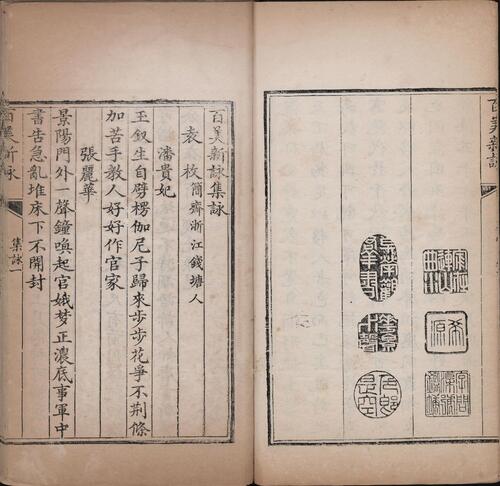 百美新詠
希源
百美新詠集詠
袁枚 簡齋浙江錢塘人
潘貴妃
玉釵生自劈楞伽尼子歸來步步花爭不荆條
加苦手教人好好作官家
張麗華
景陽門外一聲鐘喚起宮娥梦正濃底事軍中
書告急亂堆床下不開封
百美新詠
集詠一